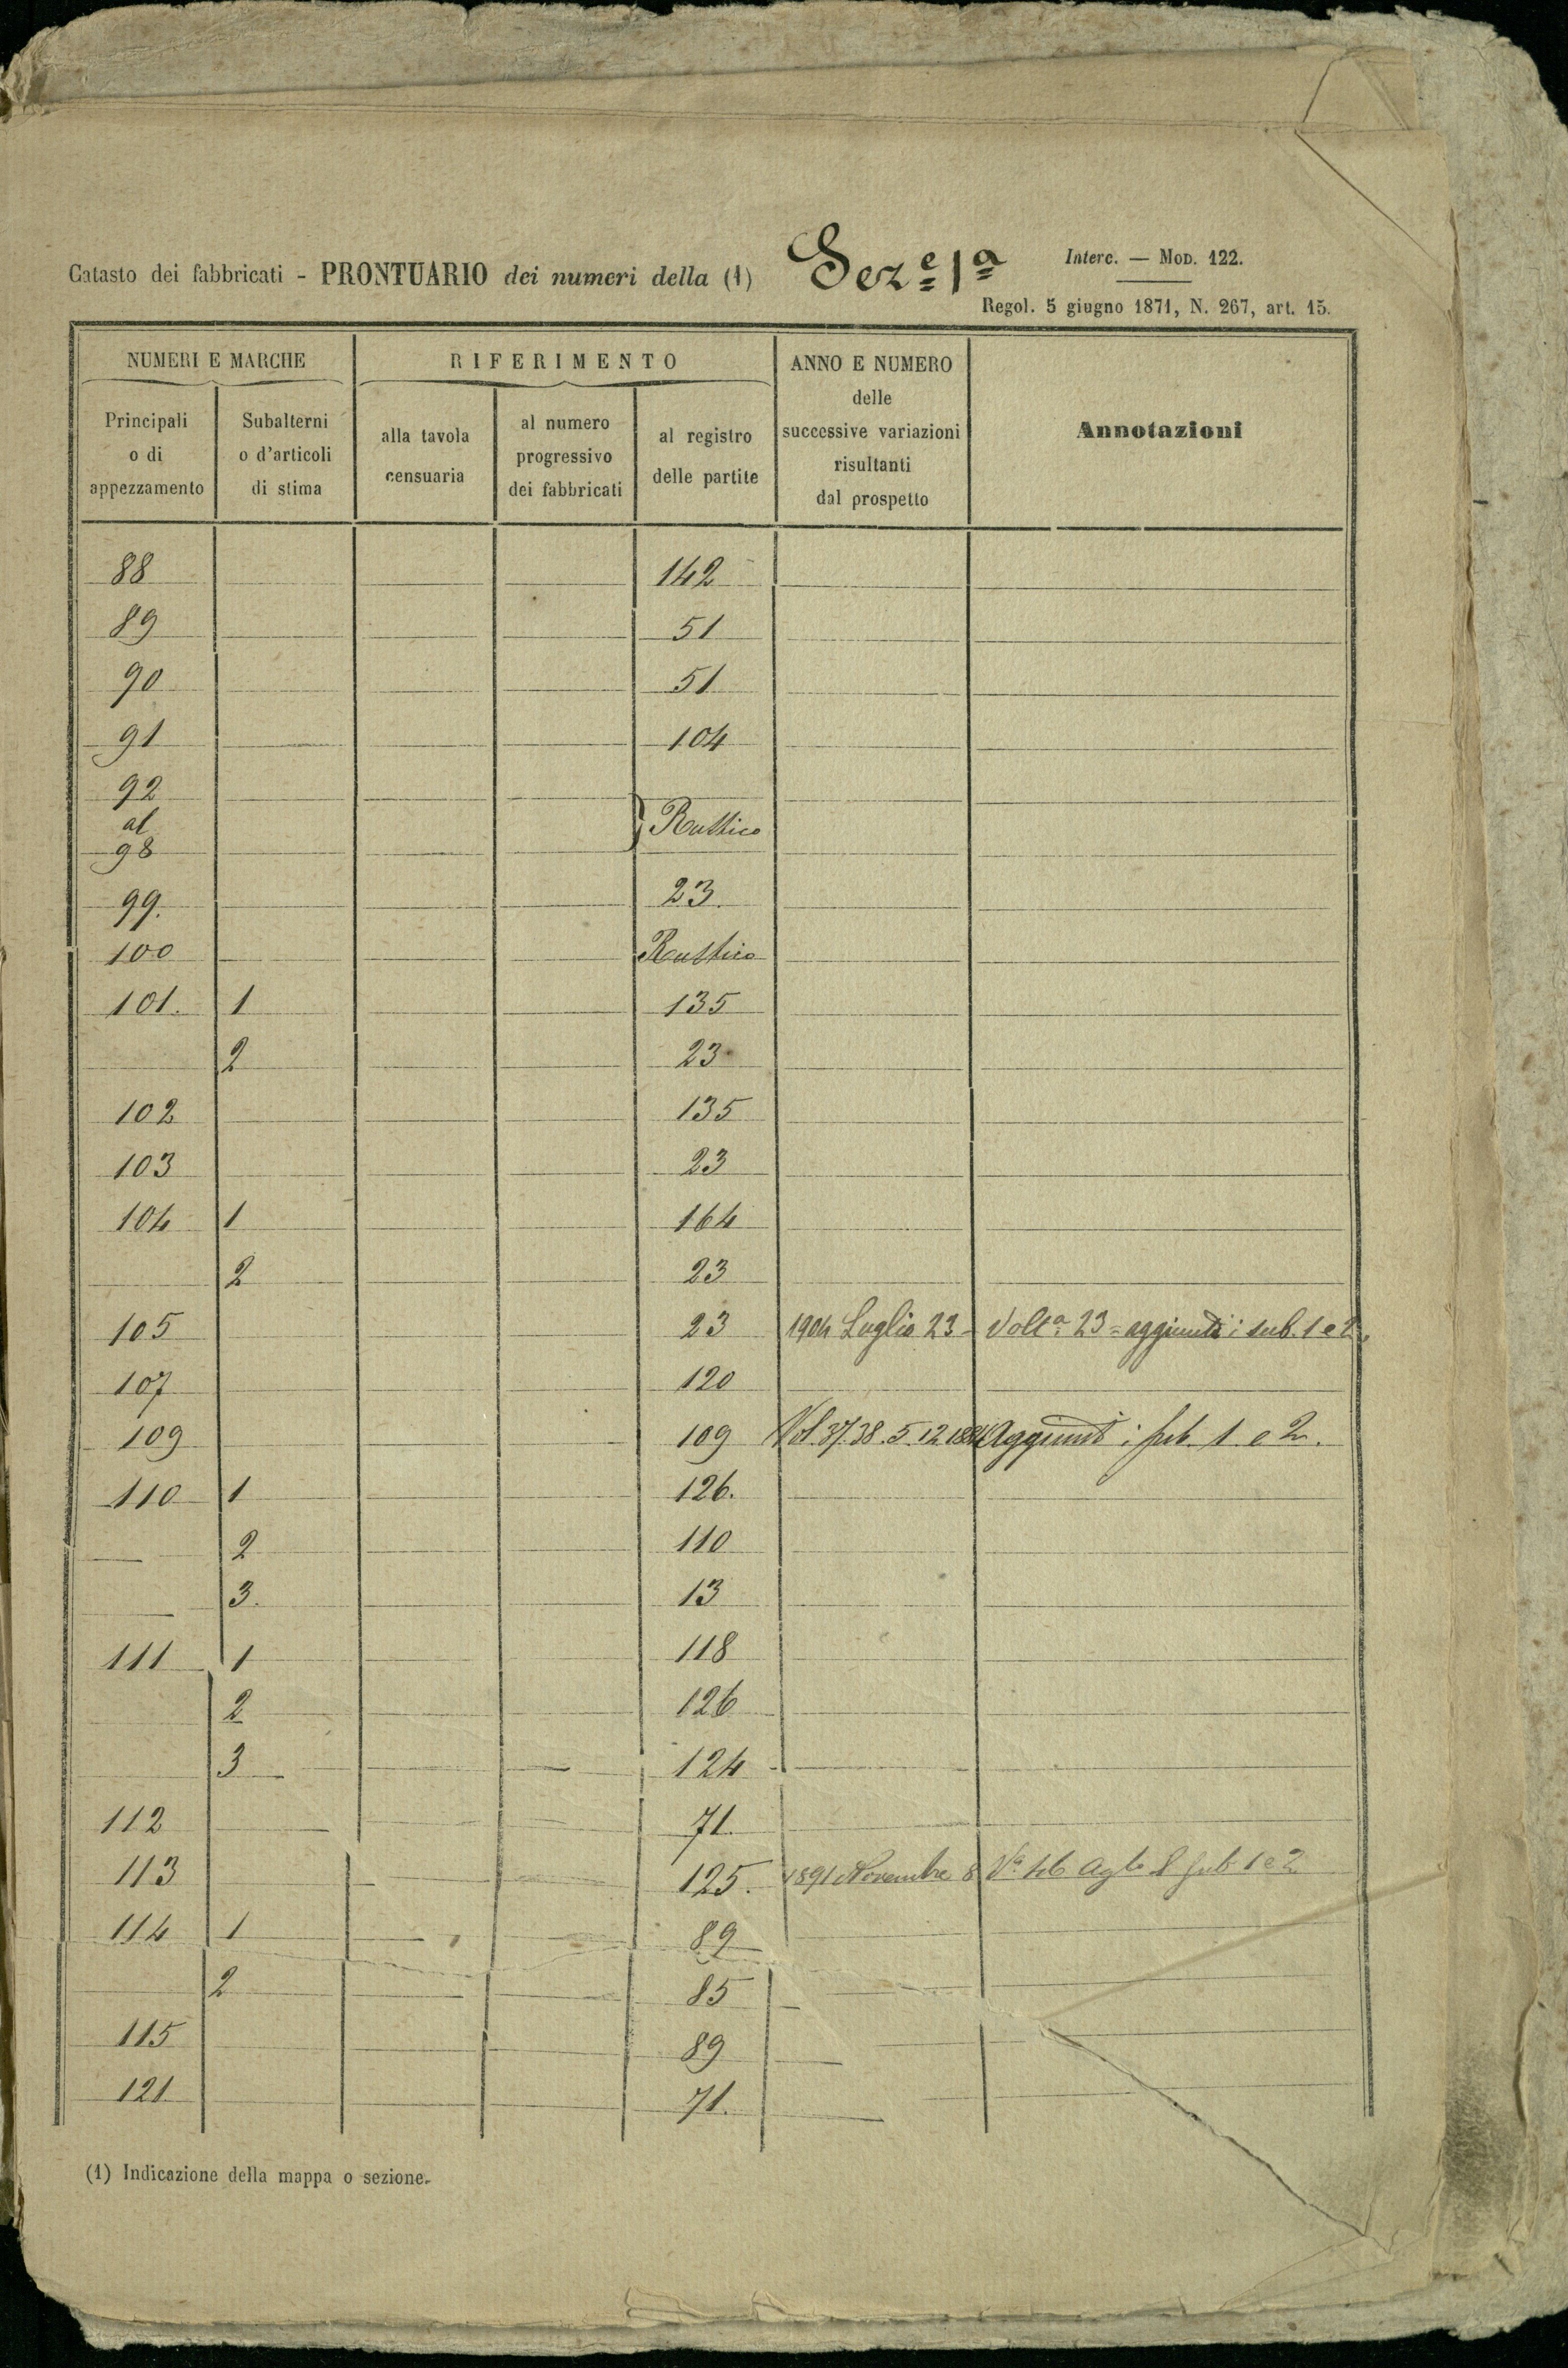 Catasto dei fabbricati - PRONTUARIO dei numeri della (1) Sez.e 1a
Interc. — Mod. 122.
Regol. 5 giugno 1871, N. 267, art. 15.
NUMERI E MARCHE
RIFERIMENTO
ANNO E NUMERO delle successive variazioni risultanti dal prospetto
Annotazioni
Principali o di appezzamento
Subalterni o d'articoli di stima
alla tavola censuaria
al numero progressivo dei fabbricati
al registro delle partite
88 142
89 51
90 51
91 104
92
al } Rustico
98
99. 23.
100 Rustico
101. 1 135
2 23
102 135
103 23
104 1 164
2 23
105 23 1904 Luglio 23 - Volta 23 = aggiunti i sub. 1 e 2.
107 120
109 109 Vol. 37.38. 5.12 Aggiunti i sub. 1 e 2.
110 1 126.
2 110
3. 13
111 1 118
2 126
3 124
112 71.
113 125. 1891 Novembre 8 Va 46 Agto sub 1 e 2
114 1 89
2 85
115 89
121 71.
(1) Indicazione della mappa o sezione.